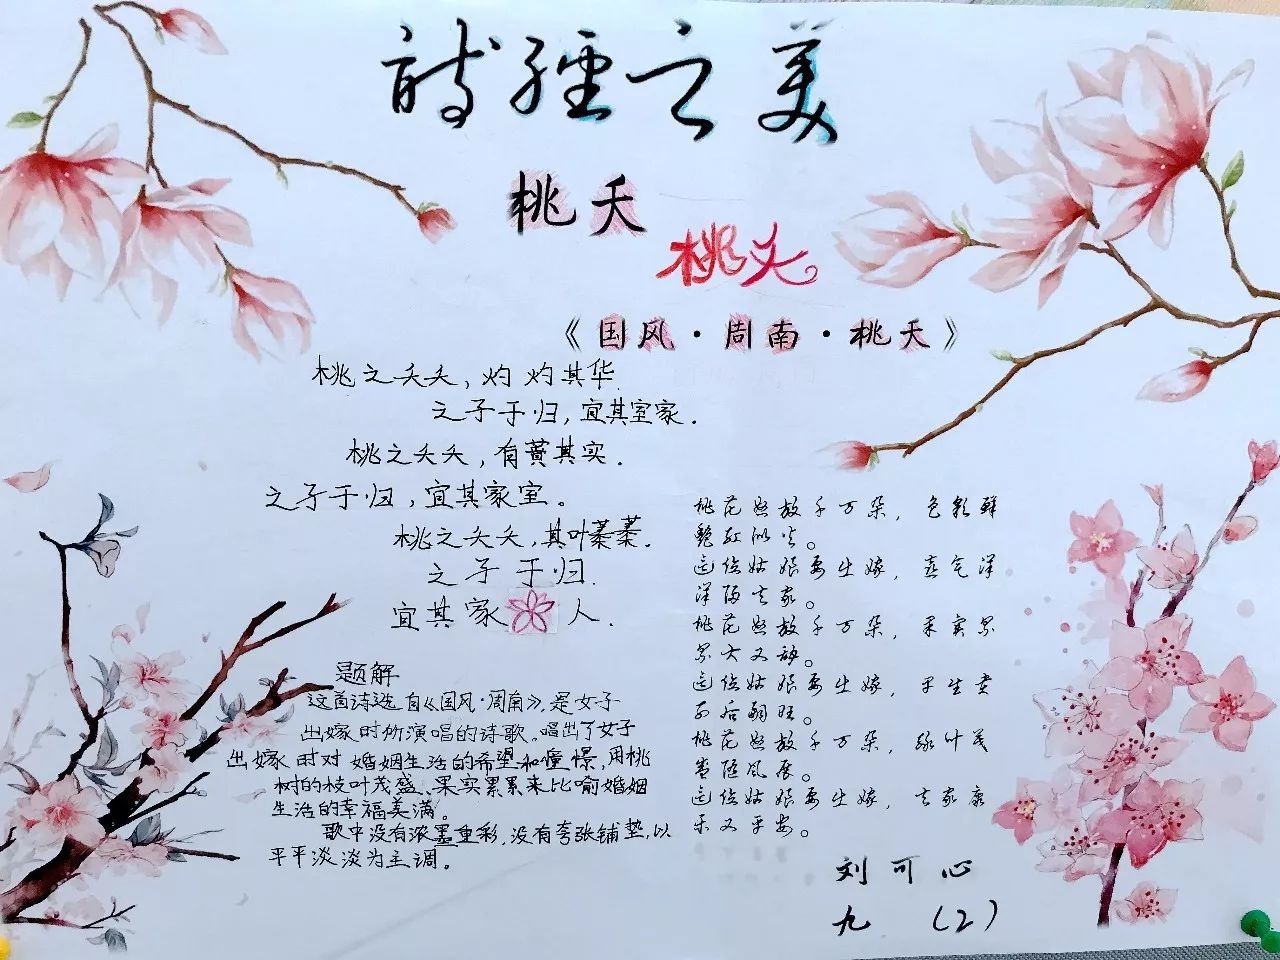 诗经之美
桃夭
桃夭
《国风·周南·桃夭》
桃之夭夭，灼灼其华.
之子于归，宜其室家.
桃之夭夭，有蕡其实.
之子于归，宜其家室。
桃之夭夭，其叶蓁蓁.
之子于归.
宜其家人.
题解
这首诗选自《国风·周南》，是女子
出嫁时所演唱的诗歌。唱出了女子
出嫁时对婚姻生活的希望和憧憬，用桃
树的枝叶茂盛、果实累累来比喻婚姻
生活的幸福美满。
歌中没有浓墨重彩，没有夸张铺垫，以
平平淡淡为主调。
桃花怒放千万朵，色彩鲜
艳红似火。
这位姑娘要出嫁，喜气洋
洋归夫家。
桃花怒放千万朵，果实累
累大又多。
这位姑娘要出嫁，早生贵
子后嗣旺。
桃花怒放千万朵，绿叶茂
盛随风展。
这位姑娘要出嫁，夫家康
乐又平安。
刘可心
九（2）